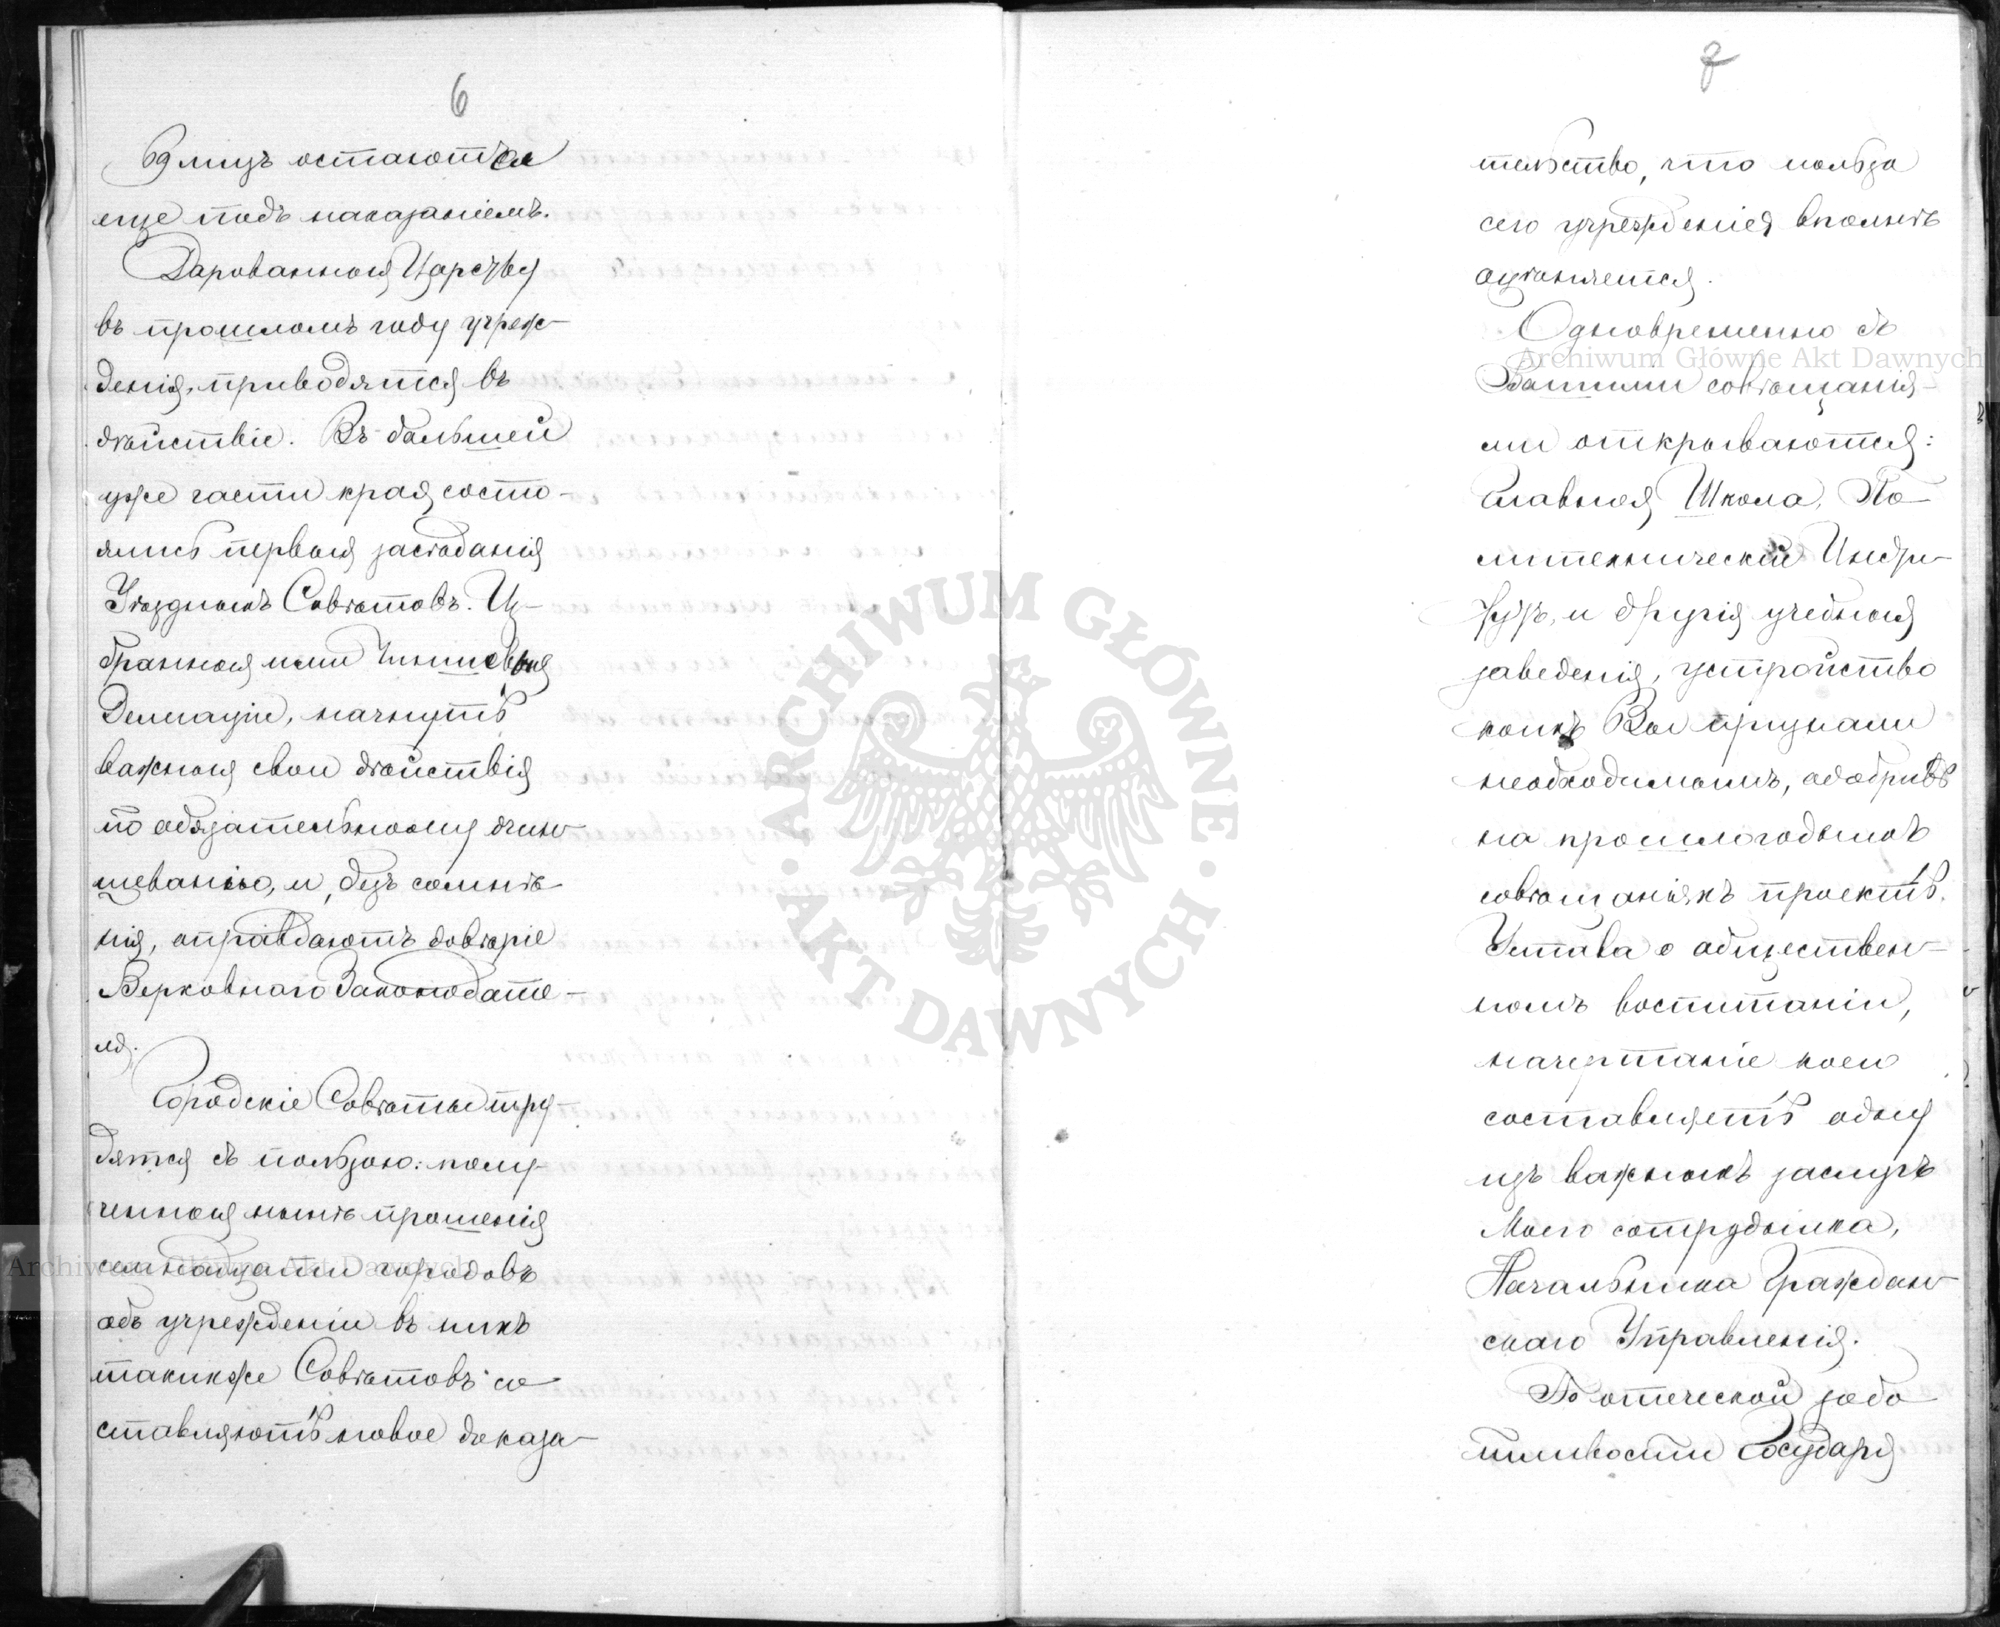 6
69 лицъ остаются
еще подъ наказаніемъ.
Дарованныя Царству
въ прошломъ году учреж-
денія, приводятся въ
дѣйствіе. Въ большей
уже части края, состо-
ялись первыя засѣданія
Уѣздныхъ Совѣтовъ. Из-
бранныя ими Чиншевыя
Делегаціи, начнутъ
важныя свои дѣйствія
по обязательному очин-
шеванію, и, безъ сомнѣ-
нія, оправдаютъ довѣріе
Верховнаго Законодате-
ля.
Городскіе Совѣты тру-
дятся съ пользою: полу-
ченныя нынѣ прошенія
семнадцати городовъ
объ учрежденіи въ нихъ
таких же Совѣтовъ со-
ставляютъ новое доказа-
7
тельство, что польза
сего учрежденія вполнѣ
оцѣняется.
Одновременно съ
Вашими совѣщанія-
ми открываются:
Главная Школа, По-
литехническій Инсти-
тутъ, и другія учебныя
заведенія, устройство
коихъ Вы признали
необходимымъ, одобривъ
на прошлогоднихъ
совѣщаніяхъ проектъ
Устава о обществен-
номъ воспитаніи,
начертаніе коего
составляетъ одну
изъ важныхъ заслугъ
Моего сотрудника,
Начальника Граждан-
скаго Управленія.
По отеческой забо-
тливости Государя
ARCHIWUM GŁÓWNE
AKT DAWNYCH
Archiwum Główne Akt Dawnych
Archiwum Główne Akt Dawnych